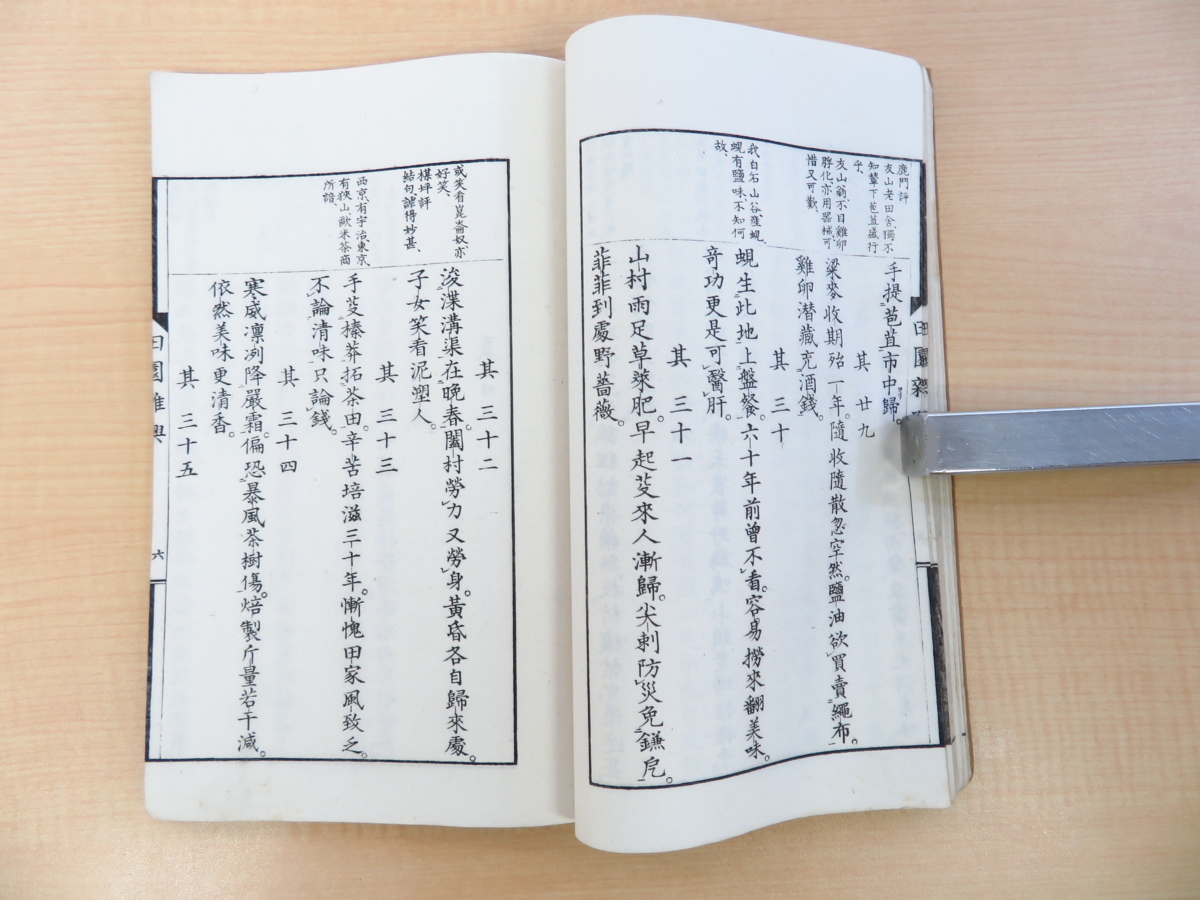 鹿門評
友山老田舍、獨不
知輦下苞苴盛行
乎、
友山翁不目雞卵
孵化亦用器械可
惜又可歎、
我白石山谷窪蜆、
蜆有鹽味、不知何
故、
手提苞苴市中歸。
其廿九
粱麥收期殆一年。隨收隨散忽空然。鹽油欲買賣繩布。
雞卵潛藏充酒錢。
其三十
蜆生此地上盤餐。六十年前曾不看。容易撈來翻美味。
奇功更是可醫肝。
其三十一
山村雨足草萊肥。早起芟來人漸歸。尖刺防災免鎌
菲菲到處野薔薇。
或笑看崑崙奴、亦
好笑、
楳坪評
結句、謔得妙甚、
西京、有宇治、東京、
有狹山、歐米茶商
所諳、
其三十二
浚渫溝渠在晚春。闔村勞力又勞身。黃昏各自歸來處。
子女笑看泥塑人。
其三十三
手芟榛莽拓茶田。辛苦培滋三十年。慚愧田家風致乏。
不論清味只論錢。
其三十四
寒威凜冽降嚴霜。偏恐暴風茶樹傷。焙製斤量若干減。
依然美味更清香。
其三十五
田園雜興
六